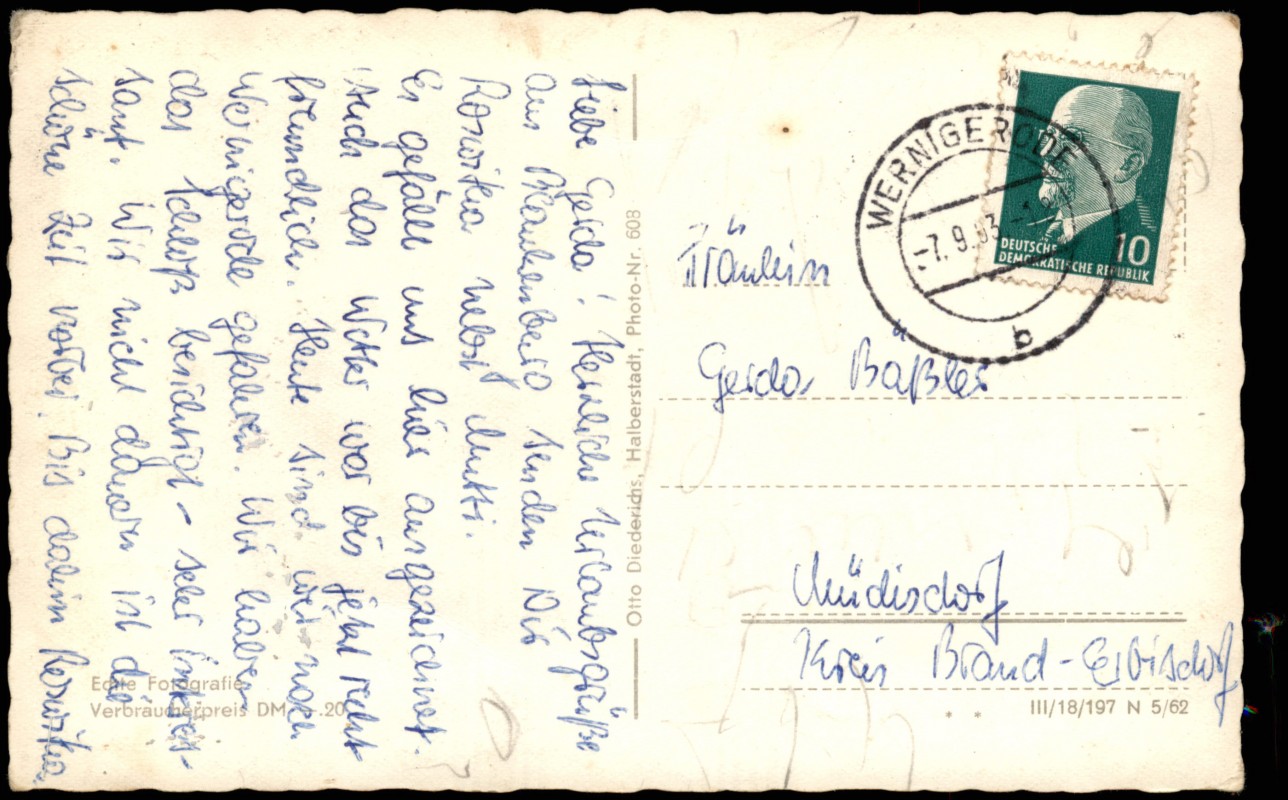 Liebe Gerda! Herzliche Urlaubsgrüße
aus Blankenburg senden Dir
Roswitha nebst Mutti.
Es gefällt uns hier ausgezeichnet.
Auch das Wetter war bis jetzt recht
freundlich. Heute sind wir nach
Wernigerode gefahren. Wir haben
das Schloß besichtigt - sehr interes-
sant. Wir nicht dauern ist die
schöne Zeit vorbei. Bis dahin Roswitha.
Echte Fotografie
Verbraucherpreis DM .20
Otto Diederichs, Halberstadt, Photo-Nr. 608
WERNIGERODE
-7.9.63
b
DEUTSCHE
DEMOKRATISCHE REPUBLIK
10
Fräulein
Gerda Bäßler
Müdisdorf
Kreis Brand-Erbisdorf
III/18/197 N 5/62